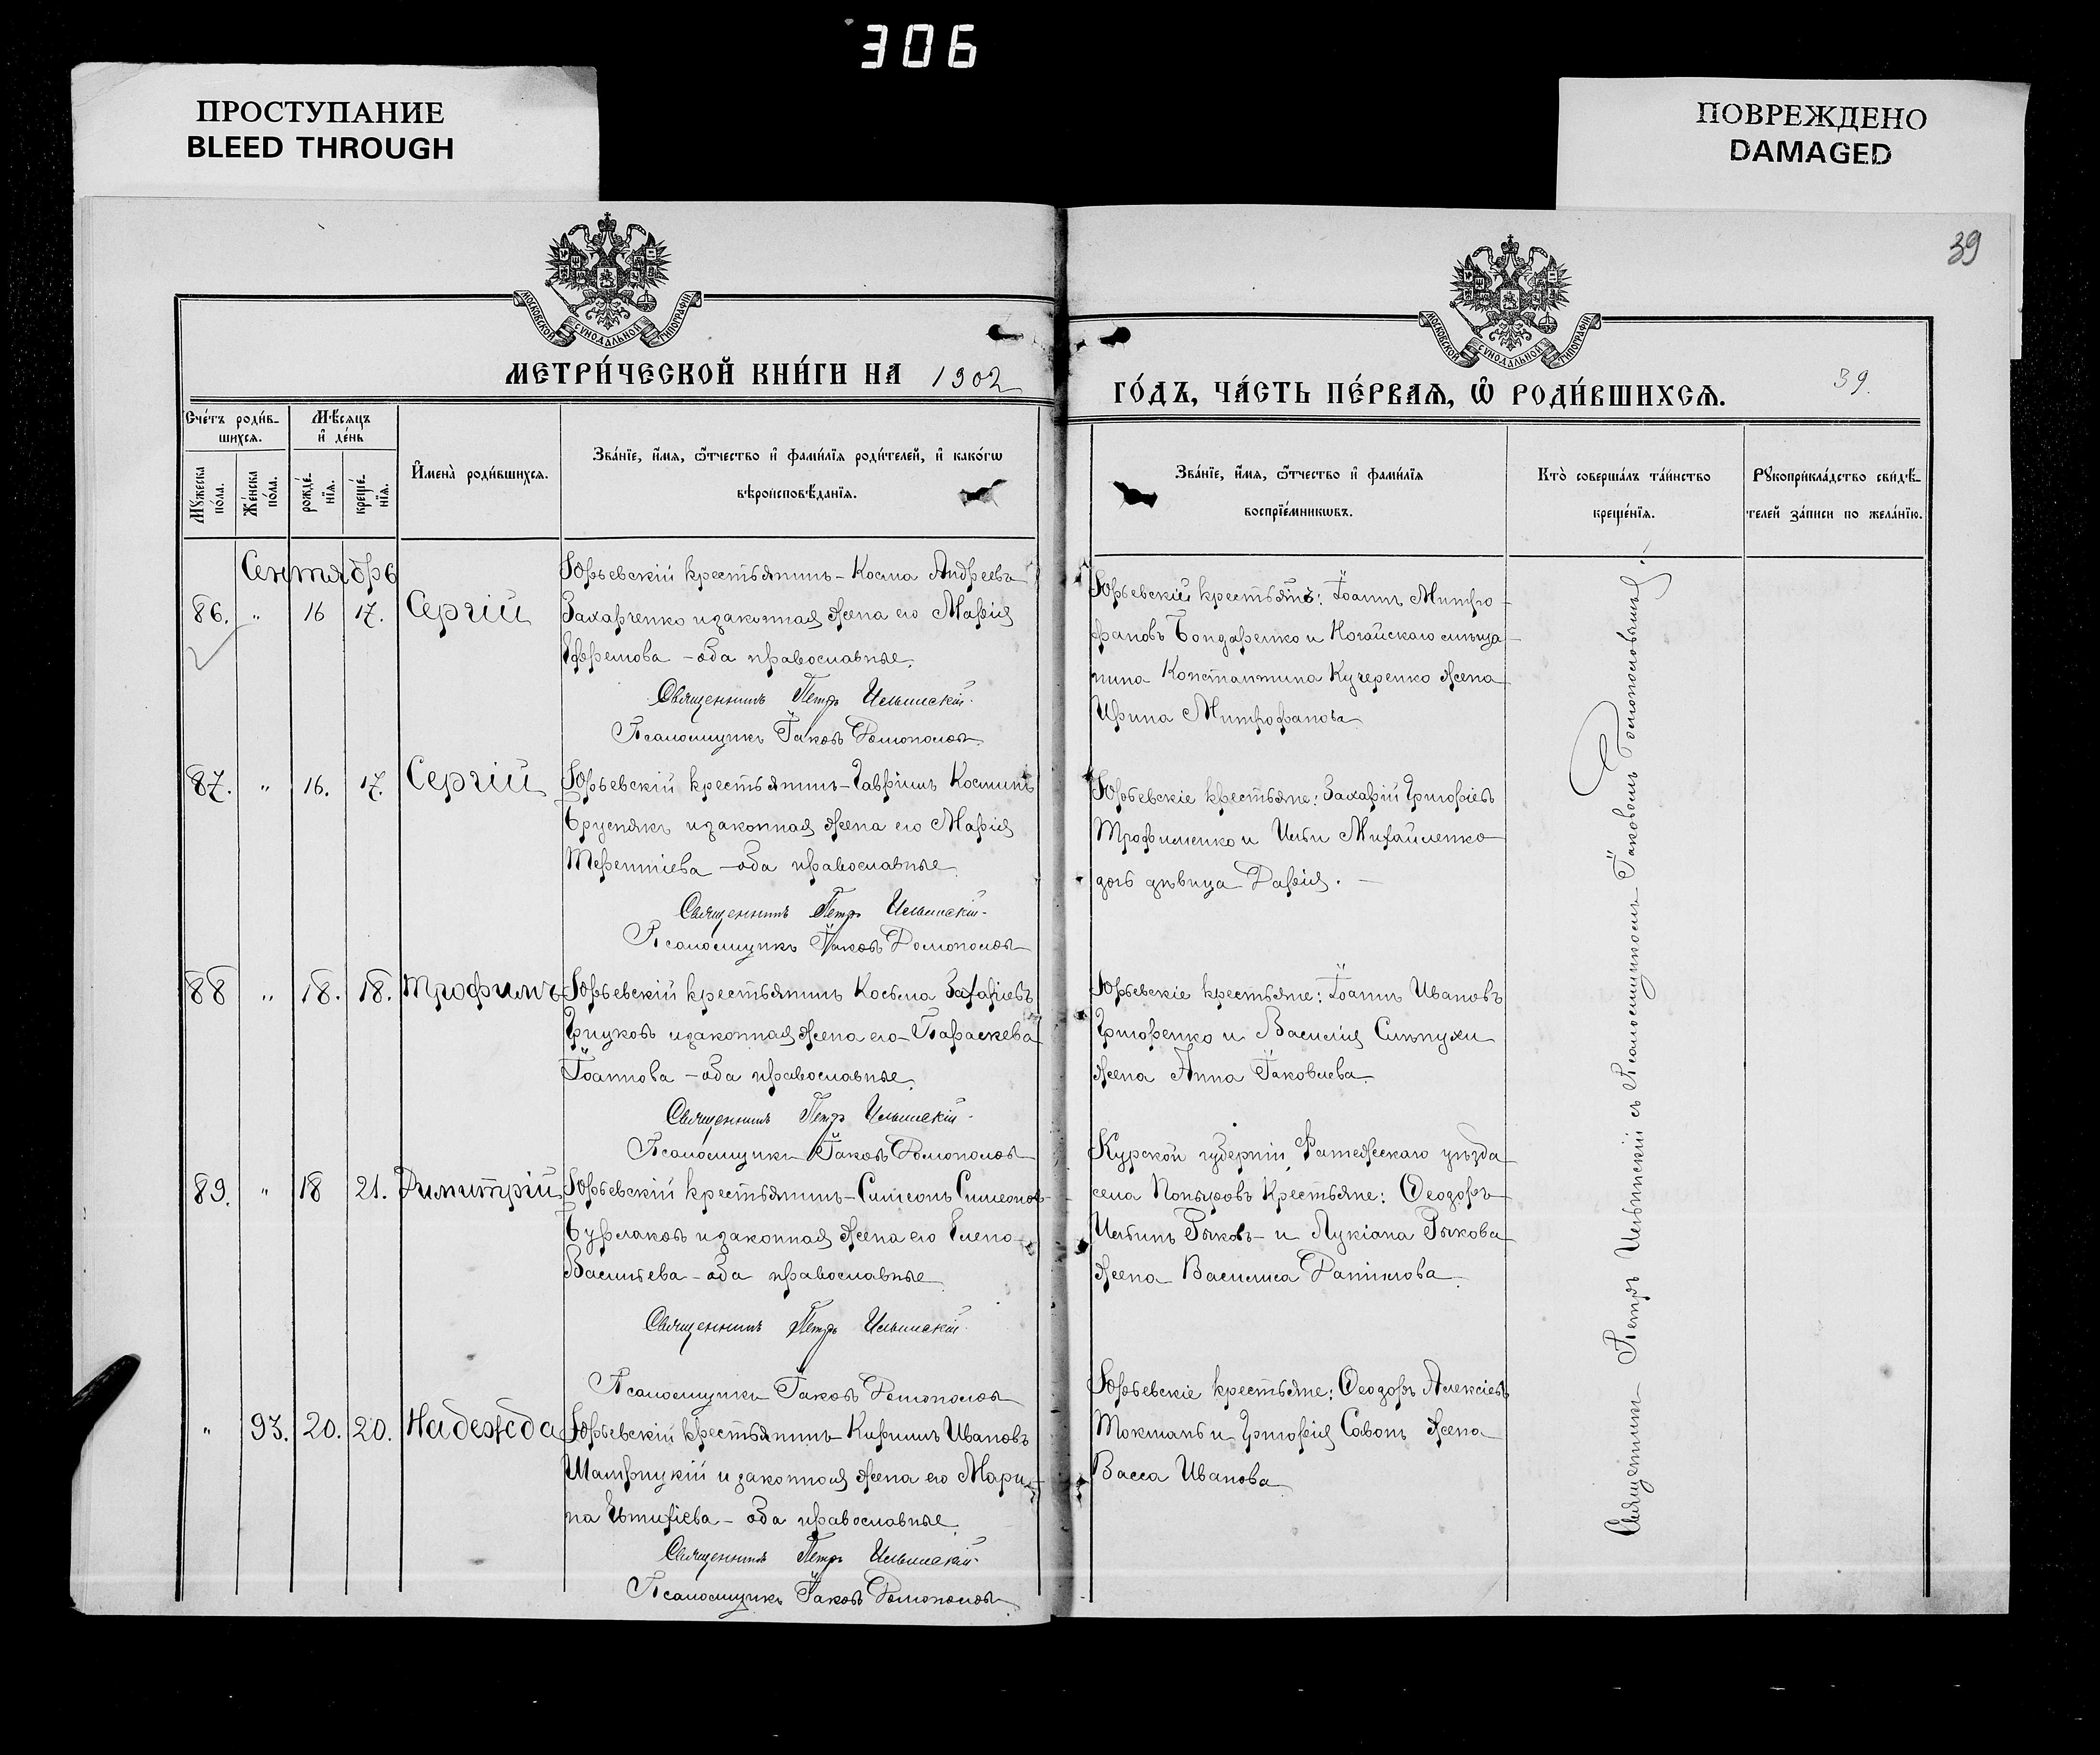 306
ПРОСТУПАНИЕ
BLEED THROUGH
ПОВРЕЖДЕНО
DAMAGED
39
МОСКОВСКОЙ СѴНОДАЛЬНОЙ ТИПОГРАФІИ
МОСКОВСКОЙ СѴНОДАЛЬНОЙ ТИПОГРАФІИ
МЕТРИ́ЧЕСКОЙ КНИ́ГИ НА 1902
ГО́ДЪ, ЧА́СТЬ ПЕ́РВАѦ, Ѡ҆ РОДИ́ВШИХСѦ.
39.
Сче́тъ роди́в-
шихсѧ.
Мѣ́сяцъ
и҆ де́нь
Мꙋ́жеска по́ла.
Же́нска по́ла.
рожде́нїѧ.
креще́нїѧ.
И҆мена̀ роди́вшихсѧ.
Зва́нїе, и҆́мѧ, ѻ҆́тчество и҆ фами́лїѧ роди́телей, и҆ како́гѡ
вѣроисповѣ́данїѧ.
Зва́нїе, и҆́мѧ, ѻ҆́тчество и҆ фами́лїѧ
воспрїе́мникѡвъ.
Кто̀ соверша́лъ та́инство
креще́нїѧ.
Рꙋкоприкла́дство свидѣ́-
телей за́писи по жела́нїю.
Сентябрь
86. " 16 17. Сергій
Юрьевскій крестьянинъ - Косма Андреевъ
Захарченко и законная жена его Марія
Ефремова - оба православные.
Священникъ Петръ Ильинскій.
Псаломщикъ Іаковъ
Юрьевскій крестьянъ: Іоаннъ Митро
фановъ Бондаренко и Ногайскаго мѣща
нина Константина Кучеренко жена
Ирина Митрофанова
87. " 16. 17. Сергій
Юрьевскій крестьянинъ - Гавріилъ Косминъ
Бруснякъ и законная жена его Марія
Терентіева - оба православные.
Священникъ Петръ Ильинскій.
Псаломщикъ Іаковъ
Юрьевскіе крестьяне: Захарій Григоріевъ
Трофименко и Ильи Михайленко
дочь дѣвица Дарія.
88 " 18. 18. Трофимъ
Юрьевскій крестьянинъ Косьма Захаріевъ
Грицковъ и законная жена его - Параскева
Іоаннова - оба православные.
Священникъ Петръ Ильинскій.
Псаломщикъ Іаковъ
Юрьевскіе крестьяне: Іоаннъ Ивановъ
Григоренко и Василія Слѣпухи
жена Анна Іаковлева.
89. " 18 21. Димитрій
Юрьевскій крестьянинъ - Симеонъ Симеонов
Бурлаковъ и законная жена его Елена
Васильева - оба православные
Священникъ Петръ Ильинскій.
Псаломщикъ Іаковъ
Курской губерніи, Фатежскаго уѣзда
села Крестьяне: Ѳеодоръ
Ильинъ Рыковъ - и Лукіана Рыкова
жена Василиса Даніилова.
" 93. 20. 20. Надежда
Юрьевскій крестьянинъ Кириллъ Ивановъ
и законная жена его Мари
на - оба православные.
Священникъ Петръ Ильинскій.
Псаломщикъ Іаковъ
Юрьевскіе крестьяне: Ѳеодоръ Алексіевъ
Токмань и Григорія жена
Васса Иванова
Священникъ Петръ Ильинскій съ Псаломщикомъ Іаковомъ